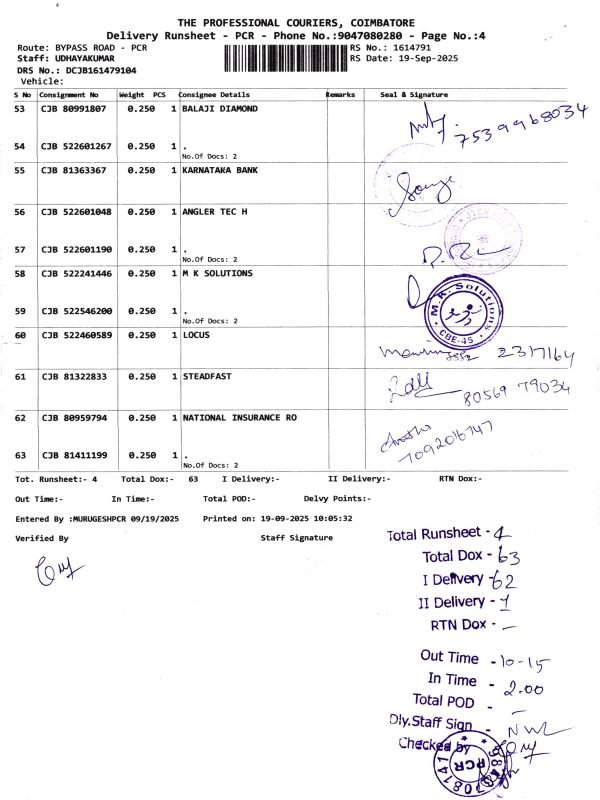 THE PROFESSIONAL COURIERS, COIMBATORE
Delivery Runsheet - PCR - Phone No.:9047080280 - Page No.:4
Route: BYPASS ROAD - PCR
RS No.: 1614791
Staff: UDHAYAKUMAR
RS Date: 19-Sep-2025
DRS No.: DCJB161479104
Vehicle:
S No Consignment No Weight PCS Consignee Details Remarks Seal & Signature
53 CJB 80991807 0.250 1 BALAJI DIAMOND
7539968034
54 CJB 522601267 0.250 1 .
No.Of Docs: 2
55 CJB 81363367 0.250 1 KARNATAKA BANK
56 CJB 522601048 0.250 1 ANGLER TEC H
57 CJB 522601190 0.250 1 .
No.Of Docs: 2
58 CJB 522241446 0.250 1 M K SOLUTIONS
M.K. Solutions
CBE-45
59 CJB 522546200 0.250 1 .
No.Of Docs: 2
60 CJB 522460589 0.250 1 LOCUS
2317164
61 CJB 81322833 0.250 1 STEADFAST
80569 79034
62 CJB 80959794 0.250 1 NATIONAL INSURANCE RO
7092016747
63 CJB 81411199 0.250 1 .
No.Of Docs: 2
Tot. Runsheet:- 4 Total Dox:- 63 I Delivery:- II Delivery:- RTN Dox:-
Out Time:- In Time:- Total POD:- Delvy Points:-
Entered By :MURUGESHPCR 09/19/2025 Printed on: 19-09-2025 10:05:32
Verified By Staff Signature
Total Runsheet - 4
Total Dox - 63
I Delivery - 62
II Delivery - 1
RTN Dox - –
Out Time - 10-15
In Time - 2.00
Total POD - –
Dly.Staff Sign -
Checked by
PCR